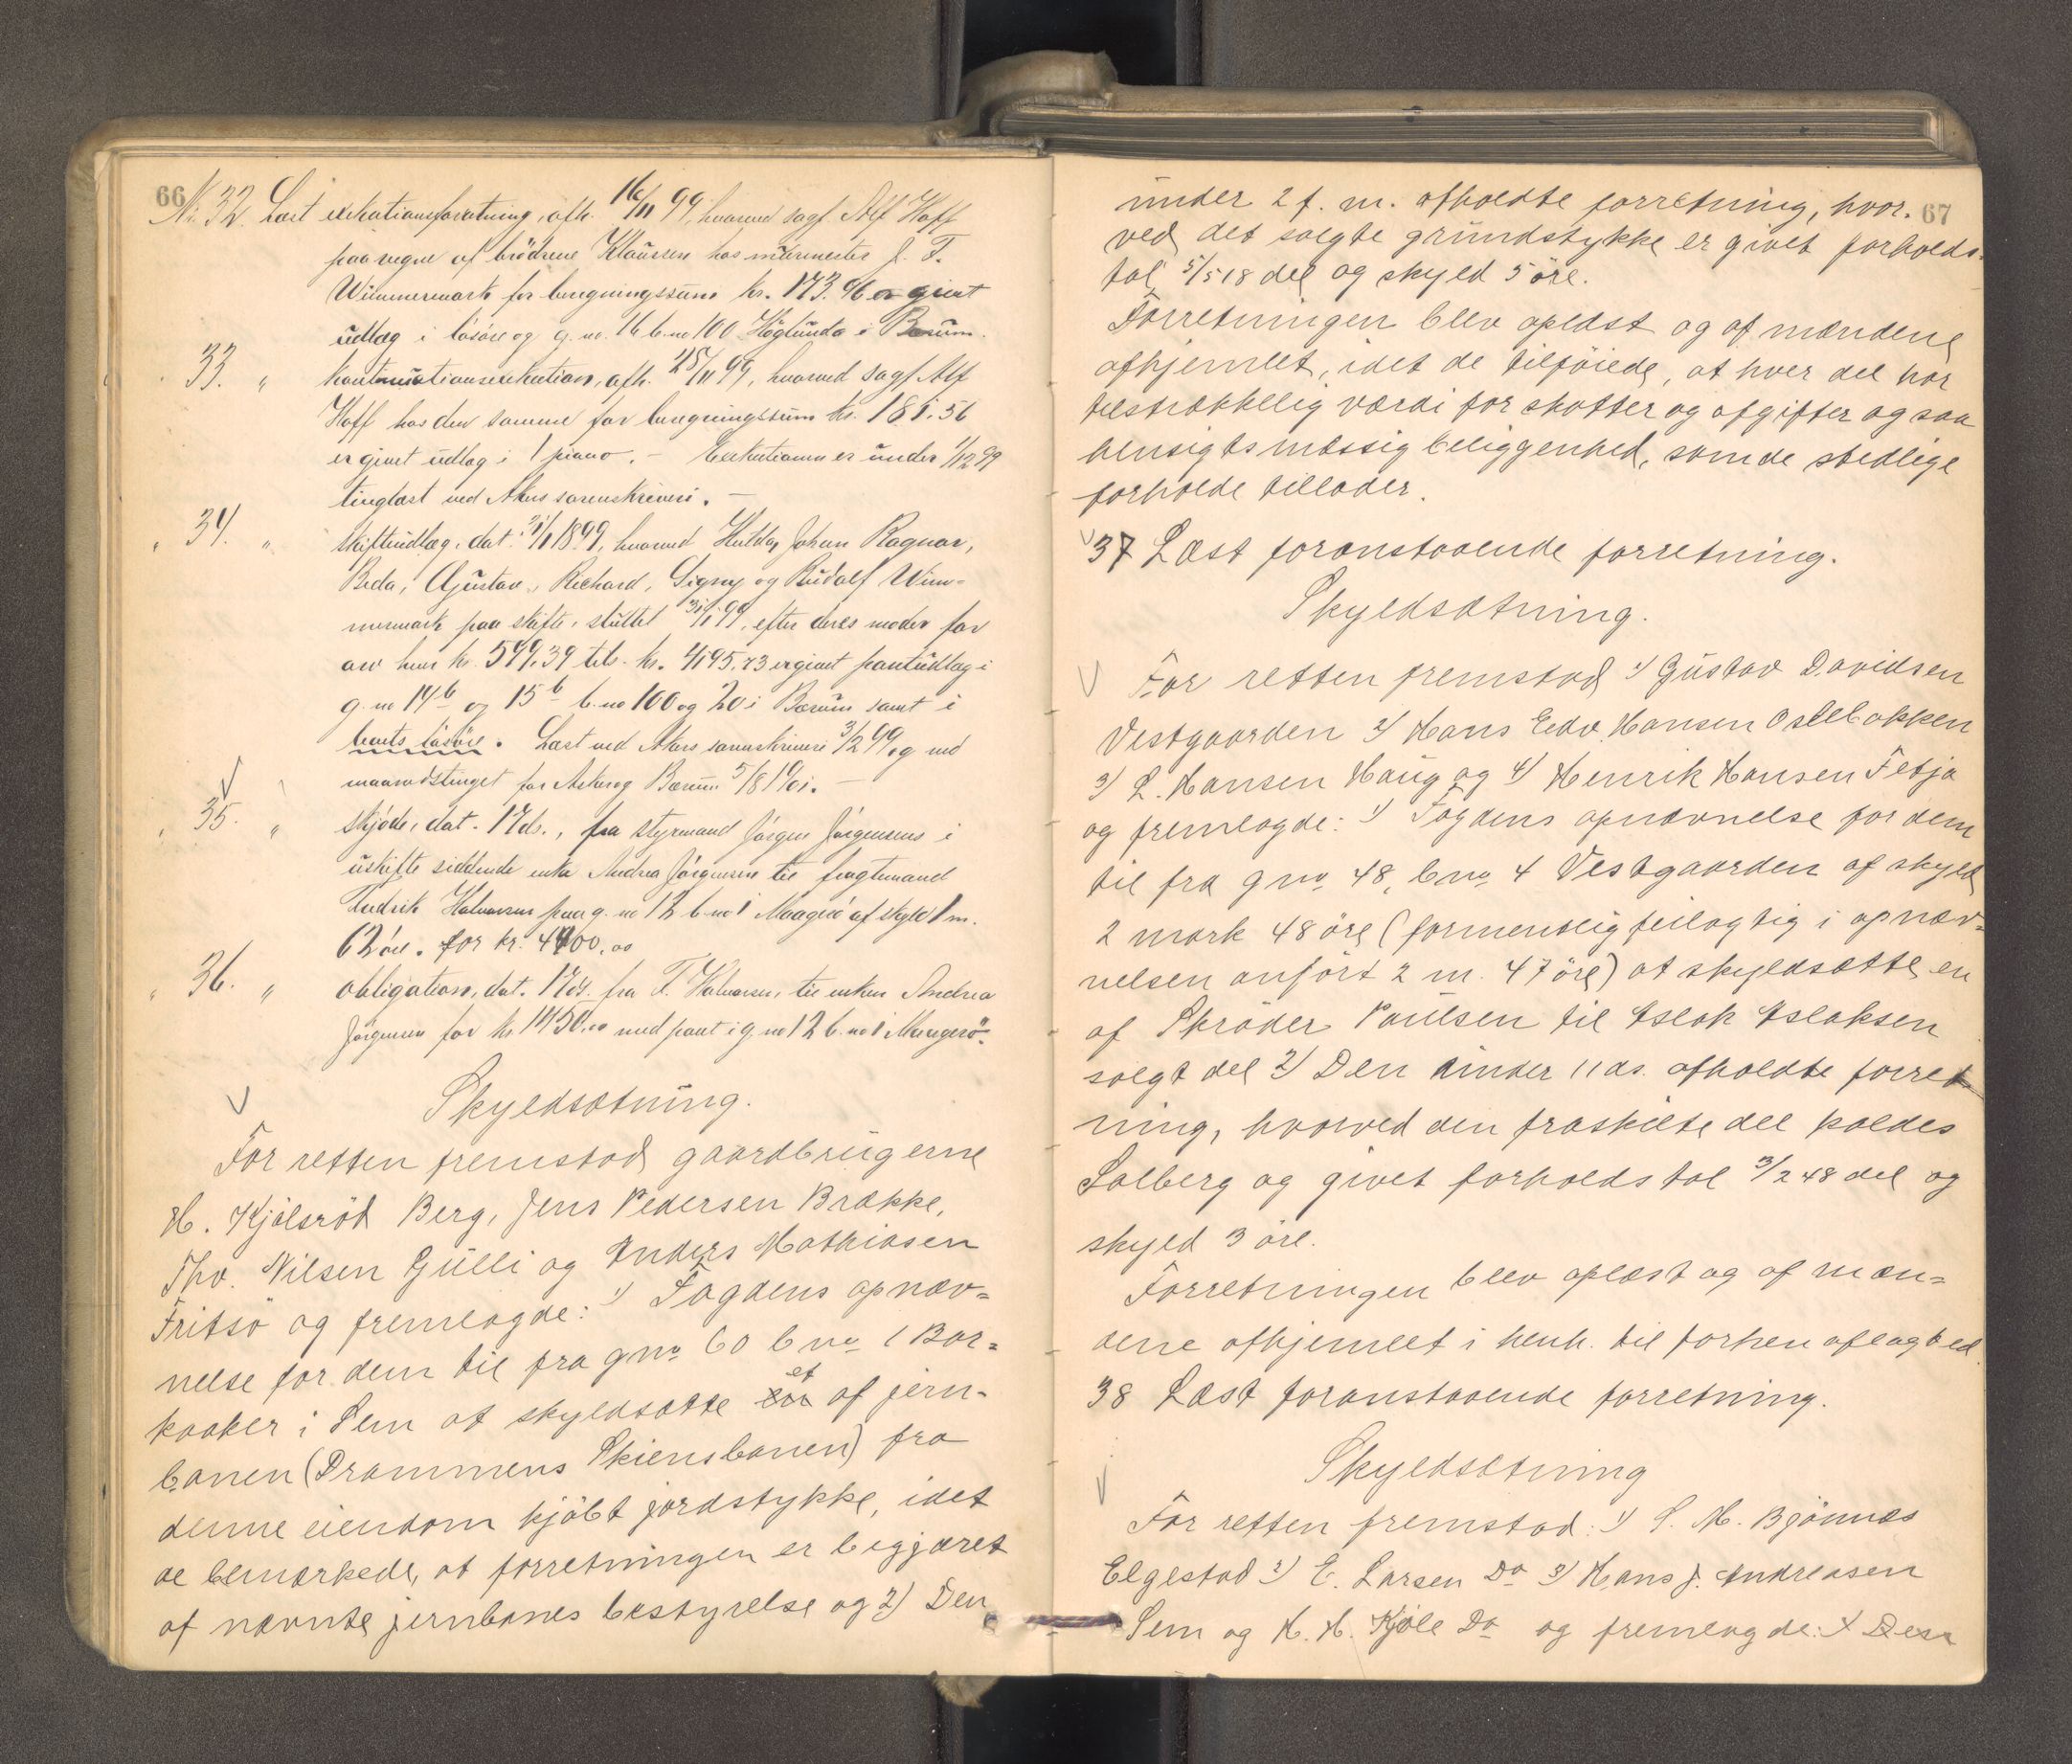 66
No. 32. Læst exekutionsforretning, afh. 16/11 99, hvorved sagf. Alf Hoff
paa vegne af brödrene Klausen hos mürmester J. F.
Wimmermark for beregningssum kr. 173.96 er givet
üdlæg i lösöre og g. no. 16 b. no 100 Höglunda i Bærüm.
33. " kontinuationsexekution, afh. 25/11 99, hvorved sagf. Alf
Hoff hos den samme for beregningssum kr. 181.56
er givet üdlæg i 1 piano. – Exekutionen er ünder 1/12 99
tinglæst ved Akers sorenskriveri. –
" 34. " skifteüdlæg, dat. 31/1 1899, hvorved Hulda, Johan Ragnar,
Beda, Güstav, Richard, Signy og Rüdolf Wim-
mermark paa skifte, slüttet 31/1 99, efter deres moder for
arv hver kr. 599.39 tils. kr. 4195.73 er givet pantüdlæg i
g. no 14b og 15b b. no 100 og 20 i Bærüm samt i
boets lösöre. Læst ved Akers sorenskriveri 3/2 99 og ved
maanedstinget for Asker og Bærüm 5/8 1901. –
" 35. " skjöde, dat. 17ds., fra styrmand Jörgen Jörgensens i
üskifte siddende enke Andrea Jörgensen til fragtemand
Fredrik Halvorsen paa g. no 12 b. no 1 Maagerö af skyld 1 m.
62 öre. for kr. 4400.00
" 36. " obligation, dat. 17ds. fra F. Halvorsen, til enken Andrea
Jörgensen for kr. 1450.00 med pant i g. no 12 b. no 1 Maagerö.
Skyldsætning.
For retten fremstod gaardbrügerne
H. Kjölsröd Berg, Jens Pedersen Brække,
Thv. Nilsen Gülli og Anders Mathiasen
Fritsö og fremlagde: 1) Fogdens opnæv=
nelse for dem til fra gno 60 bno 1 Bar=
kaaker i Sem at skyldsætte et af jern-
banen (Drammens Skiensbanen) fra
denne eiendom kjöbt jordstykke, idet
de bemærkede, at forretningen er begjæret
af nævnte jernbanes bestyrelse og 2) Den
67
ünder 2 f. m. afholdte forretning, hvor-
ved det solgte gründstykke er givet forholds-
tal 5/518 del og skyld 5 öre.
Forretningen blev oplæst og af mændene
afhjemlet, idet de tilföiede, at hver del har
tilstrækkelig værdi for skatter og afgifter og saa
hensigtsmæssig beliggenhed, som de stedlige
forholde tillader.
37 Læst foranstaaende forretning.
Skyldsætning.
For retten fremstod 1) Güstav Davidsen
Vestgaarden 2) Hans Edv. Hansen Oslebakken
3) L. Hansen Haüg og 4) Henrik Hansen Fetja
og fremlagde: 1) Fogdens opnævnelse for dem
til fra gno 48, bno 4 Vestgaarden af skyld
2 mark 48 öre (formentlig feilagtig i opnæv=
nelsen anfört 2 m. 47 öre) at skyldsætte en
af Skröder Paülsen til Aslak Aslaksen
solgt del 2) Den ünder 11 ds. afholdte forret-
ning, hvorved den fraskilte del kaldes
Solberg og givet forholdstal 3/248 del og
skyld 3 öre.
Forretningen blev oplæst og af mæn=
dene afhjemlet i henh. til forhen aflagt ed.
38 Læst foranstaaende forretning.
Skyldsætning
For retten fremstod: 1) S. M. Bjönnæs
Elgestad 2) E. Larsen Do 3) Hans J. Andreasen
Sem og H. H. Kjöle Do og fremlagde: 1) Des